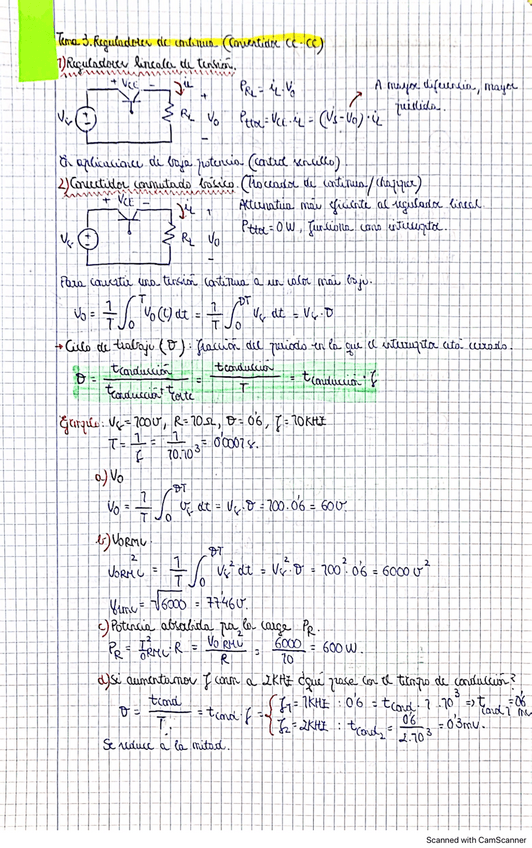 Tema 3. Reguladores de continua (Convertidor CC-CC)
1) Reguladores lineales de tensión.
+ VCE - iL + PRL = iL · Vo A mayor diferencia, mayor
pérdida.
Vs RL Vo Pttor = VCE · iL = (Vs - Vo) · iL
-
En aplicaciones de baja potencia (control sencillo)
2) Convertidor conmutado básico. (Troceador de continua/chopper)
+ VCE - iL + Alternativa más eficiente al regulador lineal
Vs RL Vo Pttor = 0W, funciona como interruptor.
-
Para convertir una tensión continua a un valor más bajo.
Vo = 1/T ∫0^T Vo(t) dt = 1/T ∫0^DT Vs dt = Vs · D
→ Ciclo de trabajo (D): fracción del periodo en la que el interruptor está cerrado.
D = tconducción / (tconducción + tcorte) = tconducción / T = tconducción · f
Ejemplo: Vs = 100V, R = 10Ω, D = 0'6, f = 10KHz
T = 1/f = 1/10·10³ = 0'0001 s.
a) Vo
Vo = 1/T ∫0^DT Vs dt = Vs · D = 100 · 0'6 = 60V
b) VoRMS.
VoRMS² = 1/T ∫0^DT Vs² dt = Vs² · D = 100² · 0'6 = 6000 V²
VRMS = √6000 = 77'46V.
c) Potencia absorbida por la carga PR.
PR = I²oRMS · R = VoRMS² / R = 6000 / 10 = 600 W.
d) Si aumentamos f conm a 2KHz ¿qué pasa con el tiempo de conducción?
D = tcond / T = tcond · f = { f1 = 1KHz : 0'6 = tcond · 1 · 10³ => tcond1 = 0'6 ms
f2 = 2KHz : tcond2 = 0'6 / 2·10³ = 0'3ms.
Se reduce a la mitad.
Scanned with CamScanner